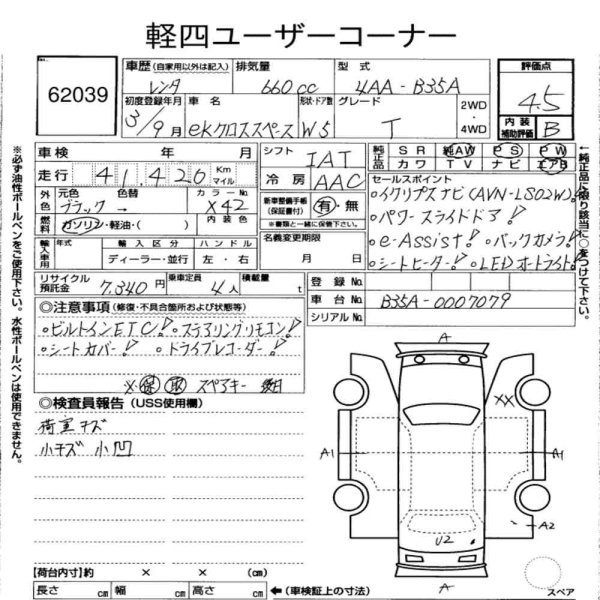 軽四ユーザーコーナー
62039
車歴 (自家用以外は記入) レンタ
排気量 660cc
型式 4AA-B35A
評価点 4.5
初度登録年月 3/9月
車名 eKクロススペース
形状・ドア数 W5
グレード T
2WD
4WD
内装補助評価 B
車検 年 月
シフト IAT
純正品 SR 純AW PS PW
カワ TV ナビ エアB
走行 41,420 Km マイル
冷房 AAC
セールスポイント
外色 元色 ブラック 色替 → カラーNo. X42
新車整備手帳(保証書付) 有・無
※書類と一緒に保管して下さい。
・イクリプスナビ(AVN-LS02W)
・パワースライドドア!
燃料 ガソリン・軽油・( ) 内装色
名義変更期限 月 日
・e-Assist! ・バックカメラ!
輸入車用 年式 輸入区分 ディーラー・並行 ハンドル 左・右
・シートヒーター! ・LEDオートライト!
リサイクル預託金 7,340円
乗車定員 4人
積載量 t
登録No.
車台No. B35A-0007079
シリアルNo.
◎注意事項 (修復・不具合箇所および状態等)
・ビルトインETC! ・ステアリングリモコン!
・シートカバー! ・ドライブレコーダー!
※ 保 取 スペアキー 後日
◎検査員報告 (USS使用欄)
荷室キズ
小キズ 小凹
A
XX
A1
A1
A2
U2
A
スペア
【荷台内寸】約 × × (cm)
長さ cm 幅 cm 高さ cm ←(車検証上の寸法)
※必ず油性ボールペンをご使用下さい。水性ボールペンは使用できません。
←純正品に限り該当に○をつけて下さい。